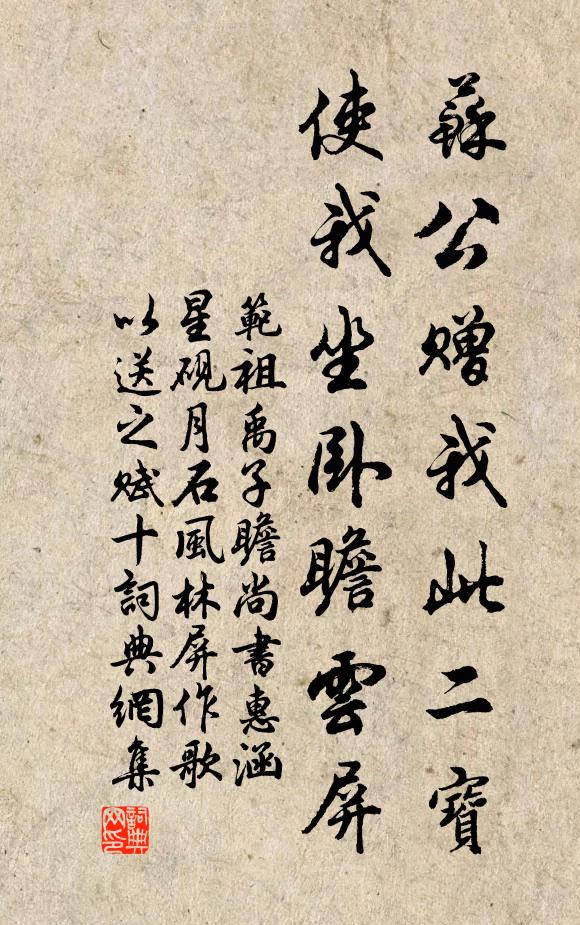 蘇公贈我此二寶
使我坐臥瞻雲屏
範祖禹子瞻尚書惠涵
星硯月石風林屏作歌
以送之賦十詞典網集
詞典
网印